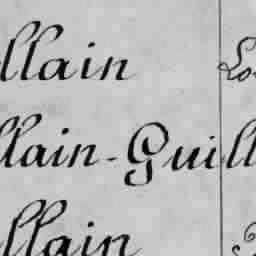 llain Lo
llain-Guill
llain